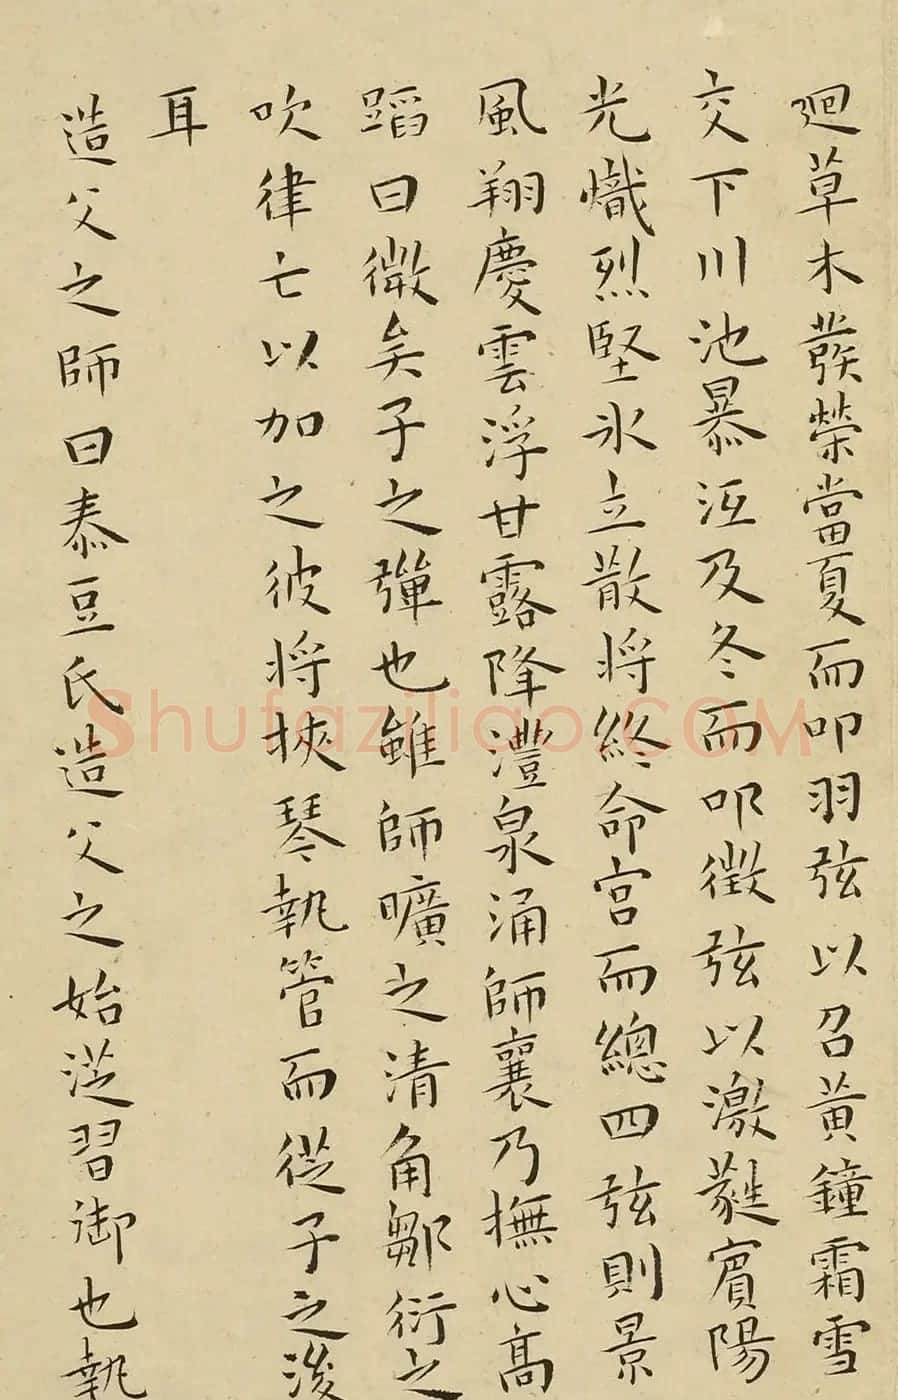 廻草木發榮當夏而叩羽弦以召黃鐘霜雪
交下川池暴沍及冬而叩徵弦以激蕤賓陽
光熾烈堅氷立散將終命宮而總四弦則景
風翔慶雲浮甘露降澧泉涌師襄乃撫心高
蹈曰微矣子之彈也雖師曠之清角鄒衍之
吹律亡以加之彼將挾琴執管而從子之後
耳
造父之師曰泰豆氏造父之始從習御也執
Shufaziliao.COM